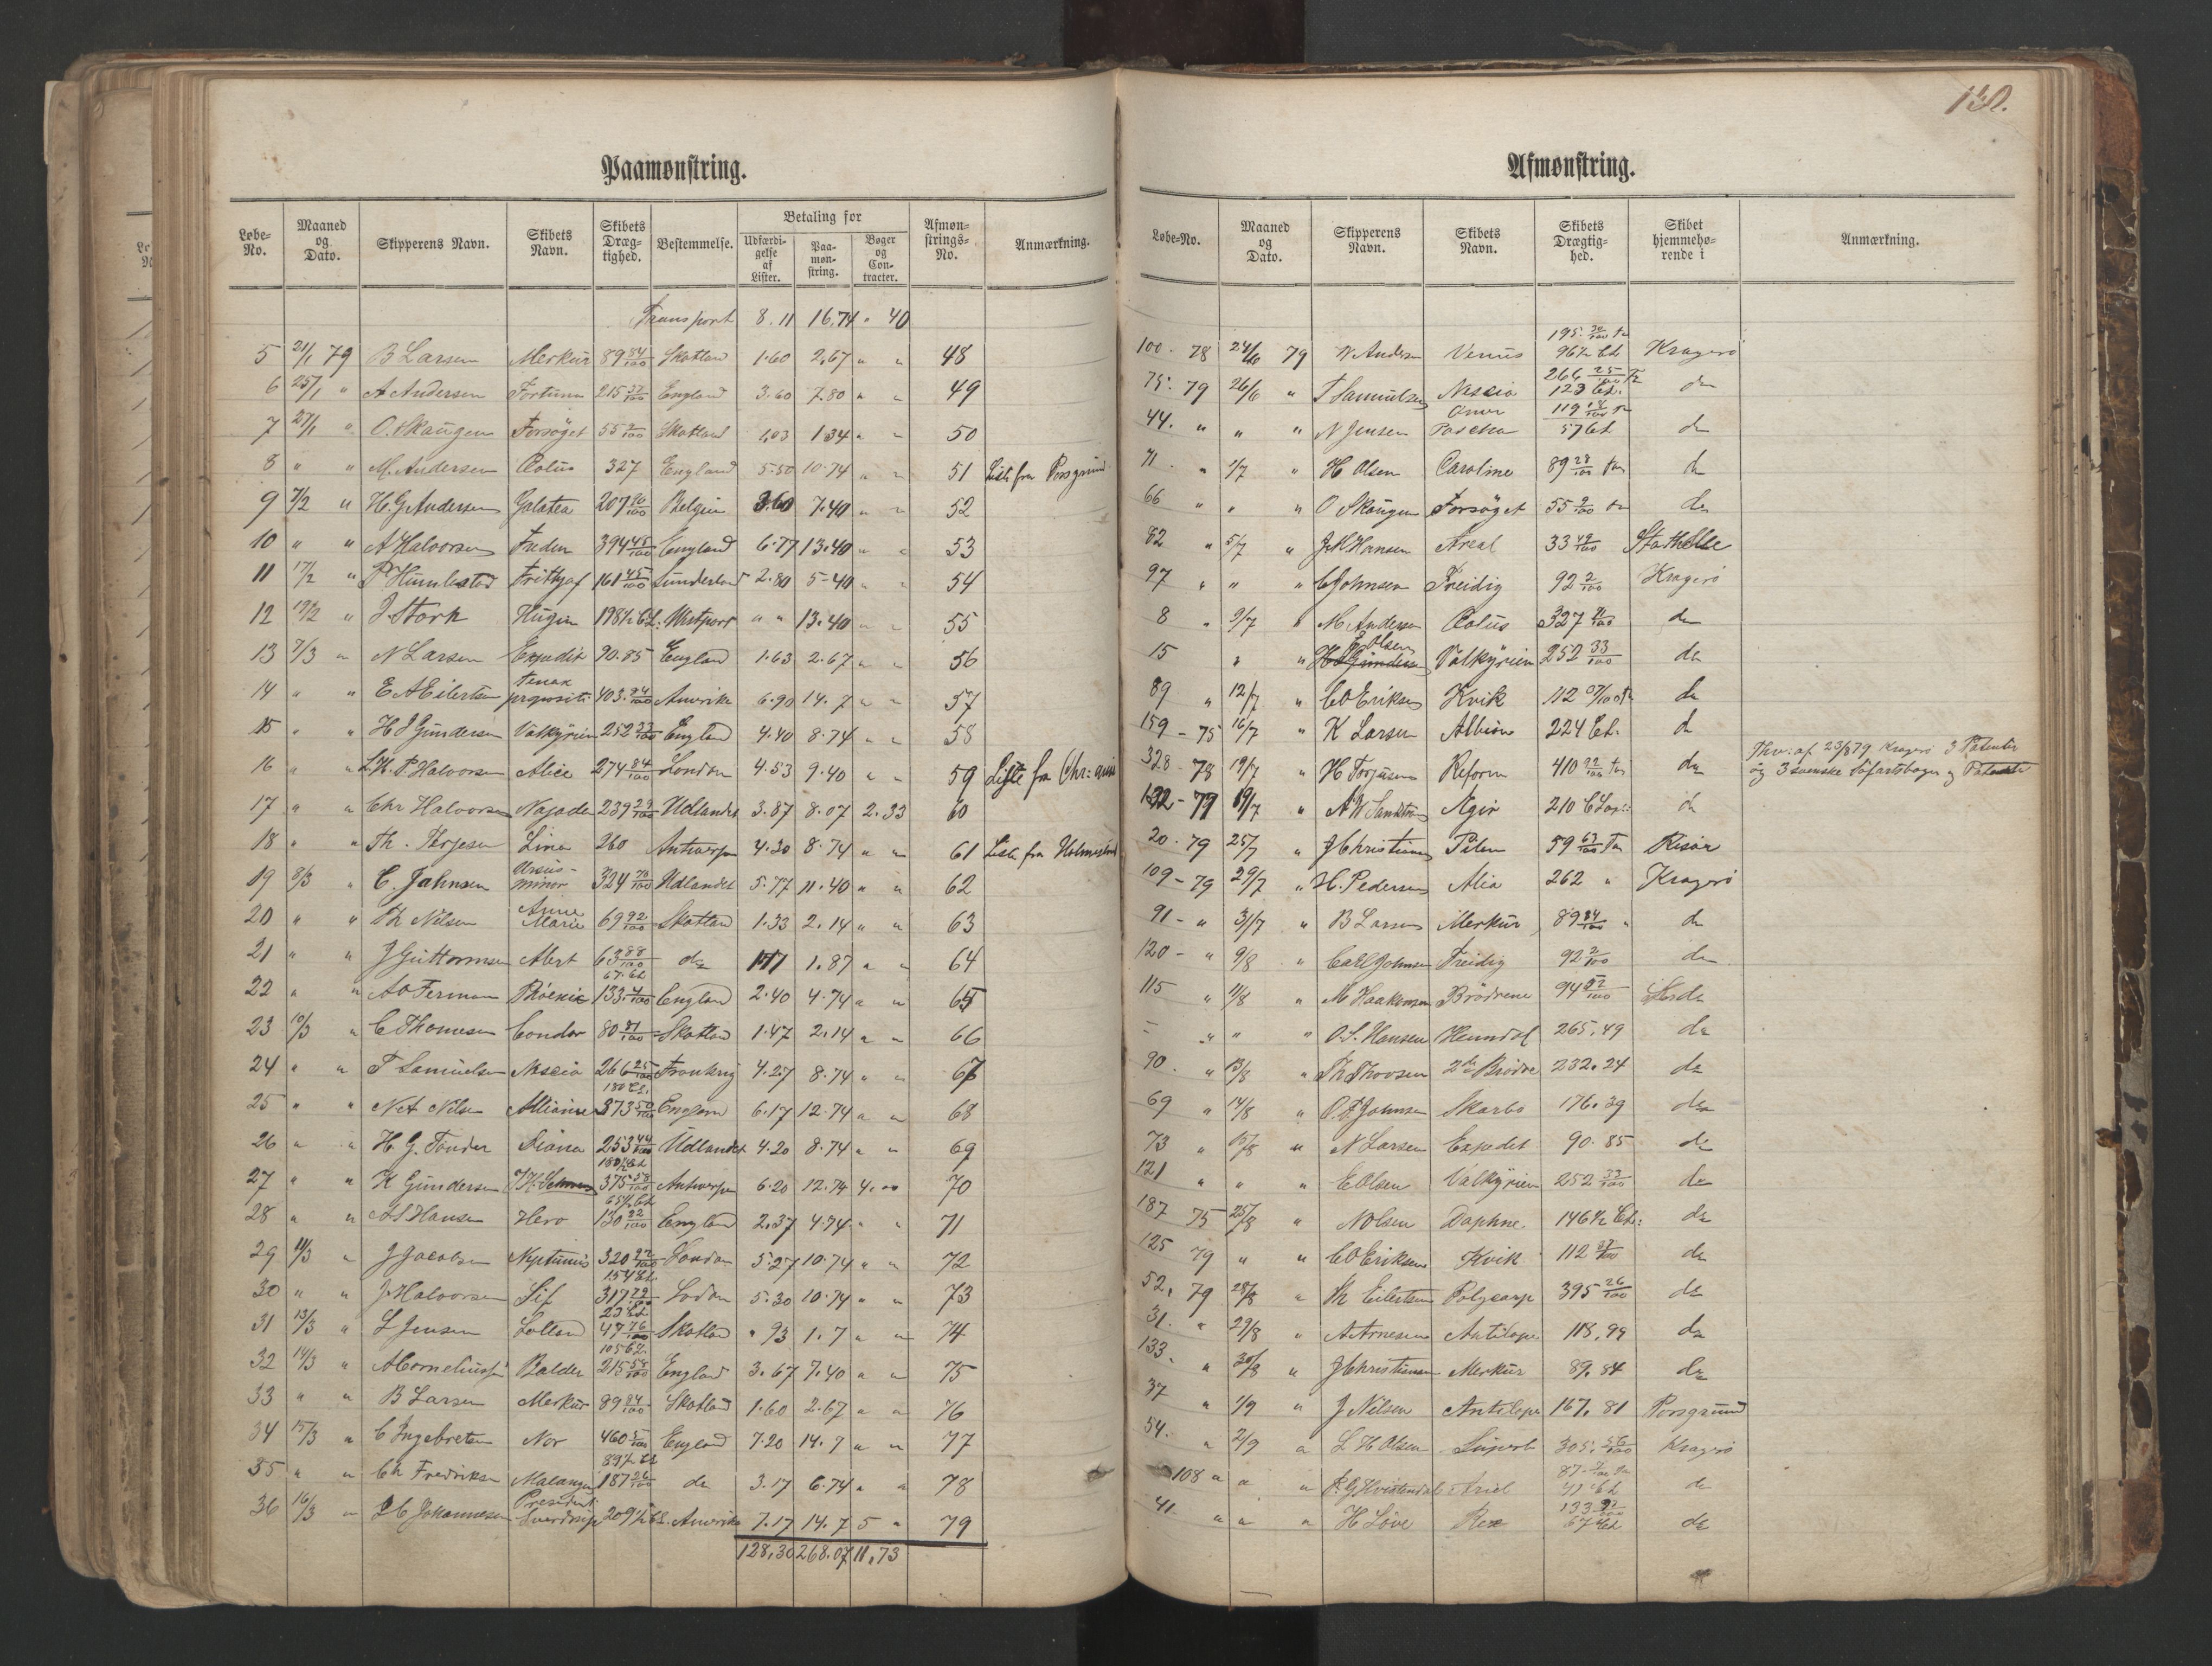 130.
Paamønstring.
Løbe-No. Maaned og Dato. Skipperens Navn. Skibets Navn. Skibets Dræg-tighed. Bestemmelse. Betaling for Udfærdi-gelse af Lister. Paa-møn-string. Bøger og Con-tracter. Afmøn-strings-No. Anmærkning.
Transport 8.11 16.74 " 40
5 21/1 79 B Larsen Merkur 89 84/100 Skotland 1.60 2.67 " " 48
6 25/1 " A Andersen Fortuna 215 37/100 England 3.60 7.80 " " 49
7 27/1 " O. Skaugen Forsøget 55 2/100 Skotland 1.03 1.34 " " 50
8 " " M. Andersen Æolus 327 England 5.50 10.74 " " 51 Liste fra Porsgrund
9 7/2 " H. G. Andersen Galatea 207 90/100 Belgien 3.60 7.40 " " 52
10 " " A Halvorsen Freden 394 45/100 England 6.77 13.40 " " 53
11 17/2 " P Humlestad Frithjof 161 45/100 Sunderland 2.80 5.40 " " 54
12 19/2 " J. Stork Hugin 198½ Cl. Westport " " 13.40 " " 55
13 7/3 " N Larsen Expedit 90.85 England 1.63 2.67 " " 56
14 " " E A Eilertsen tenax propositi 403.84/100 Amerika 6.90 14.7 " " 57
15 " " H J Gundersen Valkyrien 252 33/100 England 4.40 8.74 " " 58
16 " " L. H. P. Halvorsen Alice 274 84/100 London 4.53 9.40 " " 59 Liste fra Chr:ania
17 " " Chr Halvorsen Najaden 239 29/100 Udlandet 3.87 8.07 2.33 60
18 " " Th. Terjesen Lina 260 Antwerpen 4.30 8.74 " " 61 Liste fra Holmestrand
19 8/3 " C. Johnsen Ursus-minor 324 78/100 Udlandet 5.77 11.40 " " 62
20 " " Th Nilsen Anne Marie 69 92/100 Skotland 1.33 2.14 " " 63
21 " " J Guttormsen Albert 63 88/100 do 1.87 " " 64
22 " " A O Ferman Phöenix 67. Cl 133.4/100 England 2.40 4.74 " " 65
23 10/3 " C Thomesen Condor 80 81/100 Skotland 1.47 2.14 " " 66
24 " " T Samuelsen Nescio 266 25/100 Frankrig 4.27 8.74 " " 67
25 " " N A Nilsen Alliance 180 Cl. 373 50/100 England 6.17 12.74 " " 68
26 " " H. G. Tønder Diana 253 44/100 Udlandet 4.20 8.74 " " 69
27 " " K Gundersen 375 58/100 Antwerpen 6.20 12.74 4.00 70
28 " " A S Hansen Hero 65½ Cl 130 82/100 England 2.37 4.74 " " 71
29 11/3 " J Jacobsen Neptunus 320 92/100 London 5.27 10.74 " " 72
30 " " J. Halvorsen Sif 154 Cl. 317 79/100 Lodon 5.30 10.74 " " 73
31 13/3 " L Jensen Lolland 23 Cl 47 76/100 Skotland " 93 1.7 " " 74
32 14/3 " A Corneliussen Balder 105 Cl. 215 58/100 England 3.67 7.40 " " 75
33 " " B Larsen Merkur 89 84/100 Skotland 1.60 2.67 " " 76
34 15/3 " C Ingebretsen Nor 460 5/100 England 7.20 14.7 " " 77
35 " " Ch Fredriksen Malangen 89½ Cl 187 26/100 do 3.17 6.74 " " 78
36 16/3 " L C Johannesen President Sverdrup 209½ Cl. Amerika 7.17 14.7 5 " 79
128,30 268.07 11,73
Afmønstring.
Løbe-No. Maaned og Dato. Skipperens Navn. Skibets Navn. Skibets Drægtig-hed. Skibet hjemmehø-rende i Anmærkning.
100. 78 24/6 79 N Andersen Venus 195.32/100 tn 96½ Cl Kragerö
75. 79 26/6 " T Samuelsen Nescio 266 25/100 Tn 123 Cl. do
44. " " " N Jensen Omer Pascha 119 18/100 tn 57 Cl do
71. " 1/7 " H Olsen Caroline 89 28/100 tn do
66 " " " O Skaugen Forsøget 55 2/100 tn do
82 " 5/7 " J H Hansen Areal 33 49/100 Stathelle
97 " " " C Johnsen Freidig 92 2/100 Kragerö
8 " 9/7 " M Andersen Æolus 327 do
15 " " E Olsen Valkyrien 252 33/100 do
89 " 12/7 " C O Eriksen Kvik 112 07/100 tn do
159 - 75 16/7 " K Larsen Albion 224 Cl. do
328 - 78 19/7 " H Torjusen Reform 410 22/100 tn do 23/8 79 Kragerö 3 Patenter
og 3 svenske Söfartsböger og
132 - 79 19/7 " A W Ægir 210 C Læst: do
20 - 79 25/7 " J Christiansen Pilen 59 63/100 Tn Risör
109 - 79 29/7 " H. Pedersen Alia 262 " Kragerö
91 - " 31/7 " B Larsen Merkur 89 84/100 " do
120 - " 9/8 " Carl Johnsen Freidig 92 2/100 do
115 " 11/8 " M Haakonsen Brödrene 94 52/100
" " " O. S. Hansen Heimdal 265.49 do
90. " 13/8 " Th Thovsen 2de Brödre 232.24 do
69 " 14/8 " O. F. Johnsen Skarbo 176.39 do
73 " 15/8 " N Larsen Expedit 90.85 do
121 " " " E Olsen Valkyrien 252 33/100 do
187 75 25/8 " N Olsen Daphne. 146½ Cl: do
125 79 " " C O Eriksen Kvik 112 do
52. 79 28/8 " Th Eilertsen Polycarp 395 26/100 do
31. " 29/8 " A Arnesen Antilope 118,99 do
133. " 30/8 " J Christiansen Merkur 89.84 do
37 " 1/9 " J Nilsen Antilope 167.81 Porsgrund
54. " 2/9 " L H Olsen Superb 305.56/100 Kragerö
108 " " " P. G. Hvistendahl Ariel 87. 41 Cl do
41. " " " H Löve Rex 133 92/100 67 Cl do